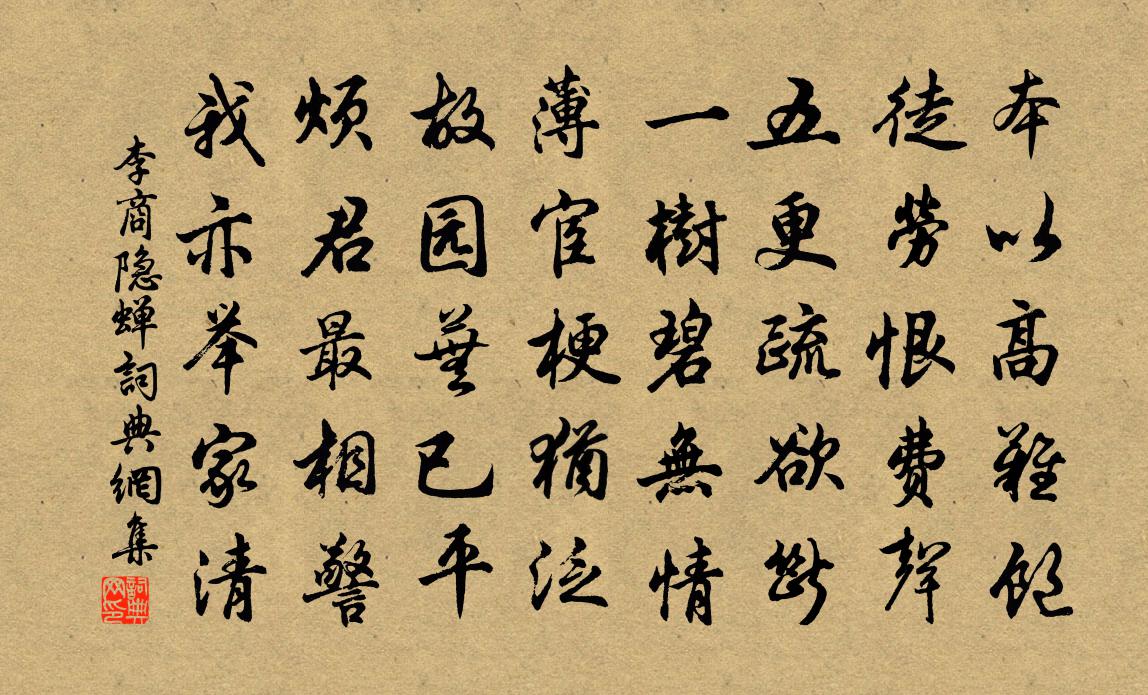 本以高難飽
徒勞恨費聲
五更疏欲斷
一樹碧無情
薄宦梗猶泛
故园蕪已平
煩君最相警
我亦举家清
李商隐蝉詞典網集
詞典网印